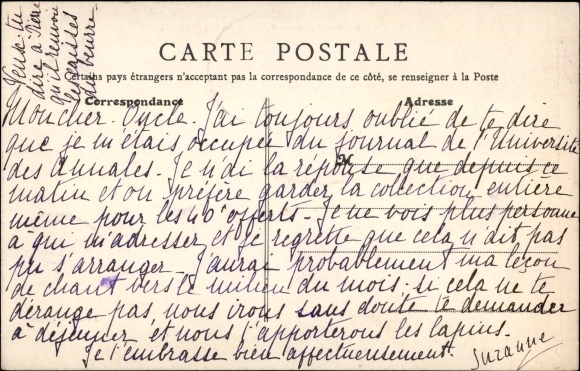 Veux-tu
dire à Pierre
qu'il renvoie
les caisses
du beurre
CARTE POSTALE
Certains pays étrangers n'acceptant pas la correspondance de ce côté, se renseigner à la Poste
Correspondance
Adresse
M
Mon cher Oncle. J'ai toujours oublié de te dire
que je m'étais occupée du journal de l'Université
des Annales. Je n'ai la réponse que depuis ce
matin et on préfère garder la collection entière
même pour les 40f offerts. Je ne vois plus personne
à qui m'adresser et je regrette que cela n'ait pas
pu s'arranger. J'aurai probablement ma leçon
de chant vers le milieu du mois. si cela ne te
dérange pas nous irons sans doute te demander
à déjeuner et nous t'apporterons les lapins.
Je t'embrasse bien affectueusement.
Suzanne